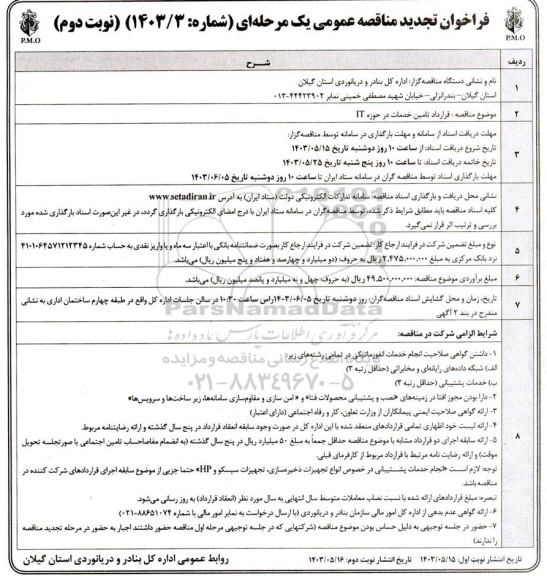 فراخوان تجدید مناقصه عمومی یک مرحله‌ای (شماره: ۱۴۰۳/۳) (نوبت دوم)
P.M.O
P.M.O
ردیف
شرح
۱
نام و نشانی دستگاه مناقصه‌گزار: اداره کل بنادر و دریانوردی استان گیلان
استان گیلان- بندرانزلی- خیابان شهید مصطفی خمینی نمابر ۴۴۴۲۳۹۰۲-۰۱۳
۲
موضوع مناقصه: قرارداد تامین خدمات در حوزه IT
۳
مهلت دریافت اسناد از سامانه و مهلت بارگذاری در سامانه توسط مناقصه‌گزار:
تاریخ شروع دریافت اسناد: از ساعت ۱۰ روز دوشنبه تاریخ ۱۴۰۳/۰۵/۱۵
تاریخ خاتمه دریافت اسناد: تا ساعت ۱۰ روز پنج شنبه تاریخ ۱۴۰۳/۰۵/۲۵
مهلت بارگذاری اسناد توسط مناقصه گران در سامانه ستاد ایران تا ساعت ۱۰ روز دوشنبه تاریخ ۱۴۰۳/۰۶/۰۵
۴
نشانی محل دریافت و بارگذاری اسناد مناقصه: سامانه تدارکات الکترونیکی دولت (ستاد ایران) به آدرس www.setadiran.ir
کلیه اسناد مناقصه باید مطابق شرایط ذکر شده، توسط مناقصه‌گران در سامانه ستاد ایران با درج امضای الکترونیکی بارگذاری گردد، در غیر این‌صورت اسناد بارگذاری شده مورد
بررسی و ترتیب اثر قرار نمی‌گیرد.
۵
نوع و مبلغ تضمین شرکت در فرایند ارجاع کار: تضمین شرکت در فرایند ارجاع کار بصورت ضمانتنامه بانکی با اعتبار سه ماه و یا واریز نقدی به حساب شماره
نزد بانک مرکزی به مبلغ ۲.۴۷۵.۰۰۰.۰۰۰ ریال به حروف: (دو میلیارد و چهارصد و هفتاد و پنج میلیون ریال) می‌باشد.
۶
مبلغ برآوردی موضوع مناقصه: ۴۹.۵۰۰.۰۰۰.۰۰۰ ریال (به حروف چهل و نه میلیارد و پانصد میلیون ریال) می‌باشد.
۷
تاریخ، زمان و محل گشایش اسناد مناقصه‌گران: روز دوشنبه تاریخ ۱۴۰۳/۰۶/۰۵ راس ساعت ۱۰:۳۰ در سالن جلسات اداره کل واقع در طبقه چهارم ساختمان اداری به نشانی
مندرج در بند ۲ آگهی
۸
شرایط الزامی شرکت در مناقصه:
۱- داشتن گواهی صلاحیت انجام خدمات انفورماتیکی در تمامی رشته‌های زیر:
الف) شبکه داده‌های رایانه‌ای و مخابراتی (حداقل رتبه ۳)
ب) خدمات پشتیبانی (حداقل رتبه ۳)
۲- دارا بودن مجوز افتا در زمینه‌های «نصب و پشتیبانی محصولات فتا» و « امن سازی و مقاوم‌سازی سامانه‌ها، زیرساخت‌ها و سرویس‌ها»
۳- ارائه گواهی صلاحیت ایمنی پیمانکاران از وزارت تعاون، کار و رفاه اجتماعی (دارای اعتبار)
۴- ارائه لیست خود اظهاری تمامی قراردادهای منعقد شده با این اداره کل در صورت وجود سابقه انعقاد قرارداد در پنج سال گذشته و ارائه رضایتنامه مربوط.
۵- ارائه سابقه اجرای دو قرارداد مشابه با موضوع مناقصه حداقل جمعاً به مبلغ ۵۰ میلیارد ریال در پنج سال گذشته (به انضمام مفاصاحساب تامین اجتماعی یا صورتجلسه تحویل
موقت) و ارائه رضایت نامه مرتبط با قرارداد مربوط از کارفرمای قبلی.
توجه: لازم است «انجام خدمات پشتیبانی در خصوص انواع تجهیزات ذخیره‌سازی، تجهیزات سیسکو و HP» حتما جزیی از موضوع سابقه اجرای قراردادهای شرکت کننده در
مناقصه باشد.
تبصره: مبلغ قراردادهای ارائه شده با نسبت نصاب معاملات متوسط سال انتهایی به سال مورد نظر (انعقاد قرارداد) به روز رسانی می‌شود.
۶- ارائه گواهی عدم بدهی از اداره کل امور مالی سازمان بنادر و دریانوردی (با ارسال درخواست به نمابر امور مالی با شماره ۸۸۶۵۱۰۷۴-۰۲۱)
۷- حضور در جلسه توجیهی به دلیل حساس بودن موضوع مناقصه (شرکتهایی که در جلسه توجیهی مرحله اول مناقصه حضور داشتند اجبار به حضور در مرحله تجدید مناقصه
را ندارند)
تاریخ انتشار نوبت اول: ۱۴۰۳/۰۵/۱۵ تاریخ انتشار نوبت دوم: ۱۴۰۳/۰۵/۱۶
روابط عمومی اداره کل بنادر و دریانوردی استان گیلان
ParsNamadData
مرکز فرآوری اطلاعات پارس نماد داده‌ها
پایگاه اطلاع رسانی مناقصه و مزایده
۰۲۱-۸۸۳۴۹۶۷۰-۵